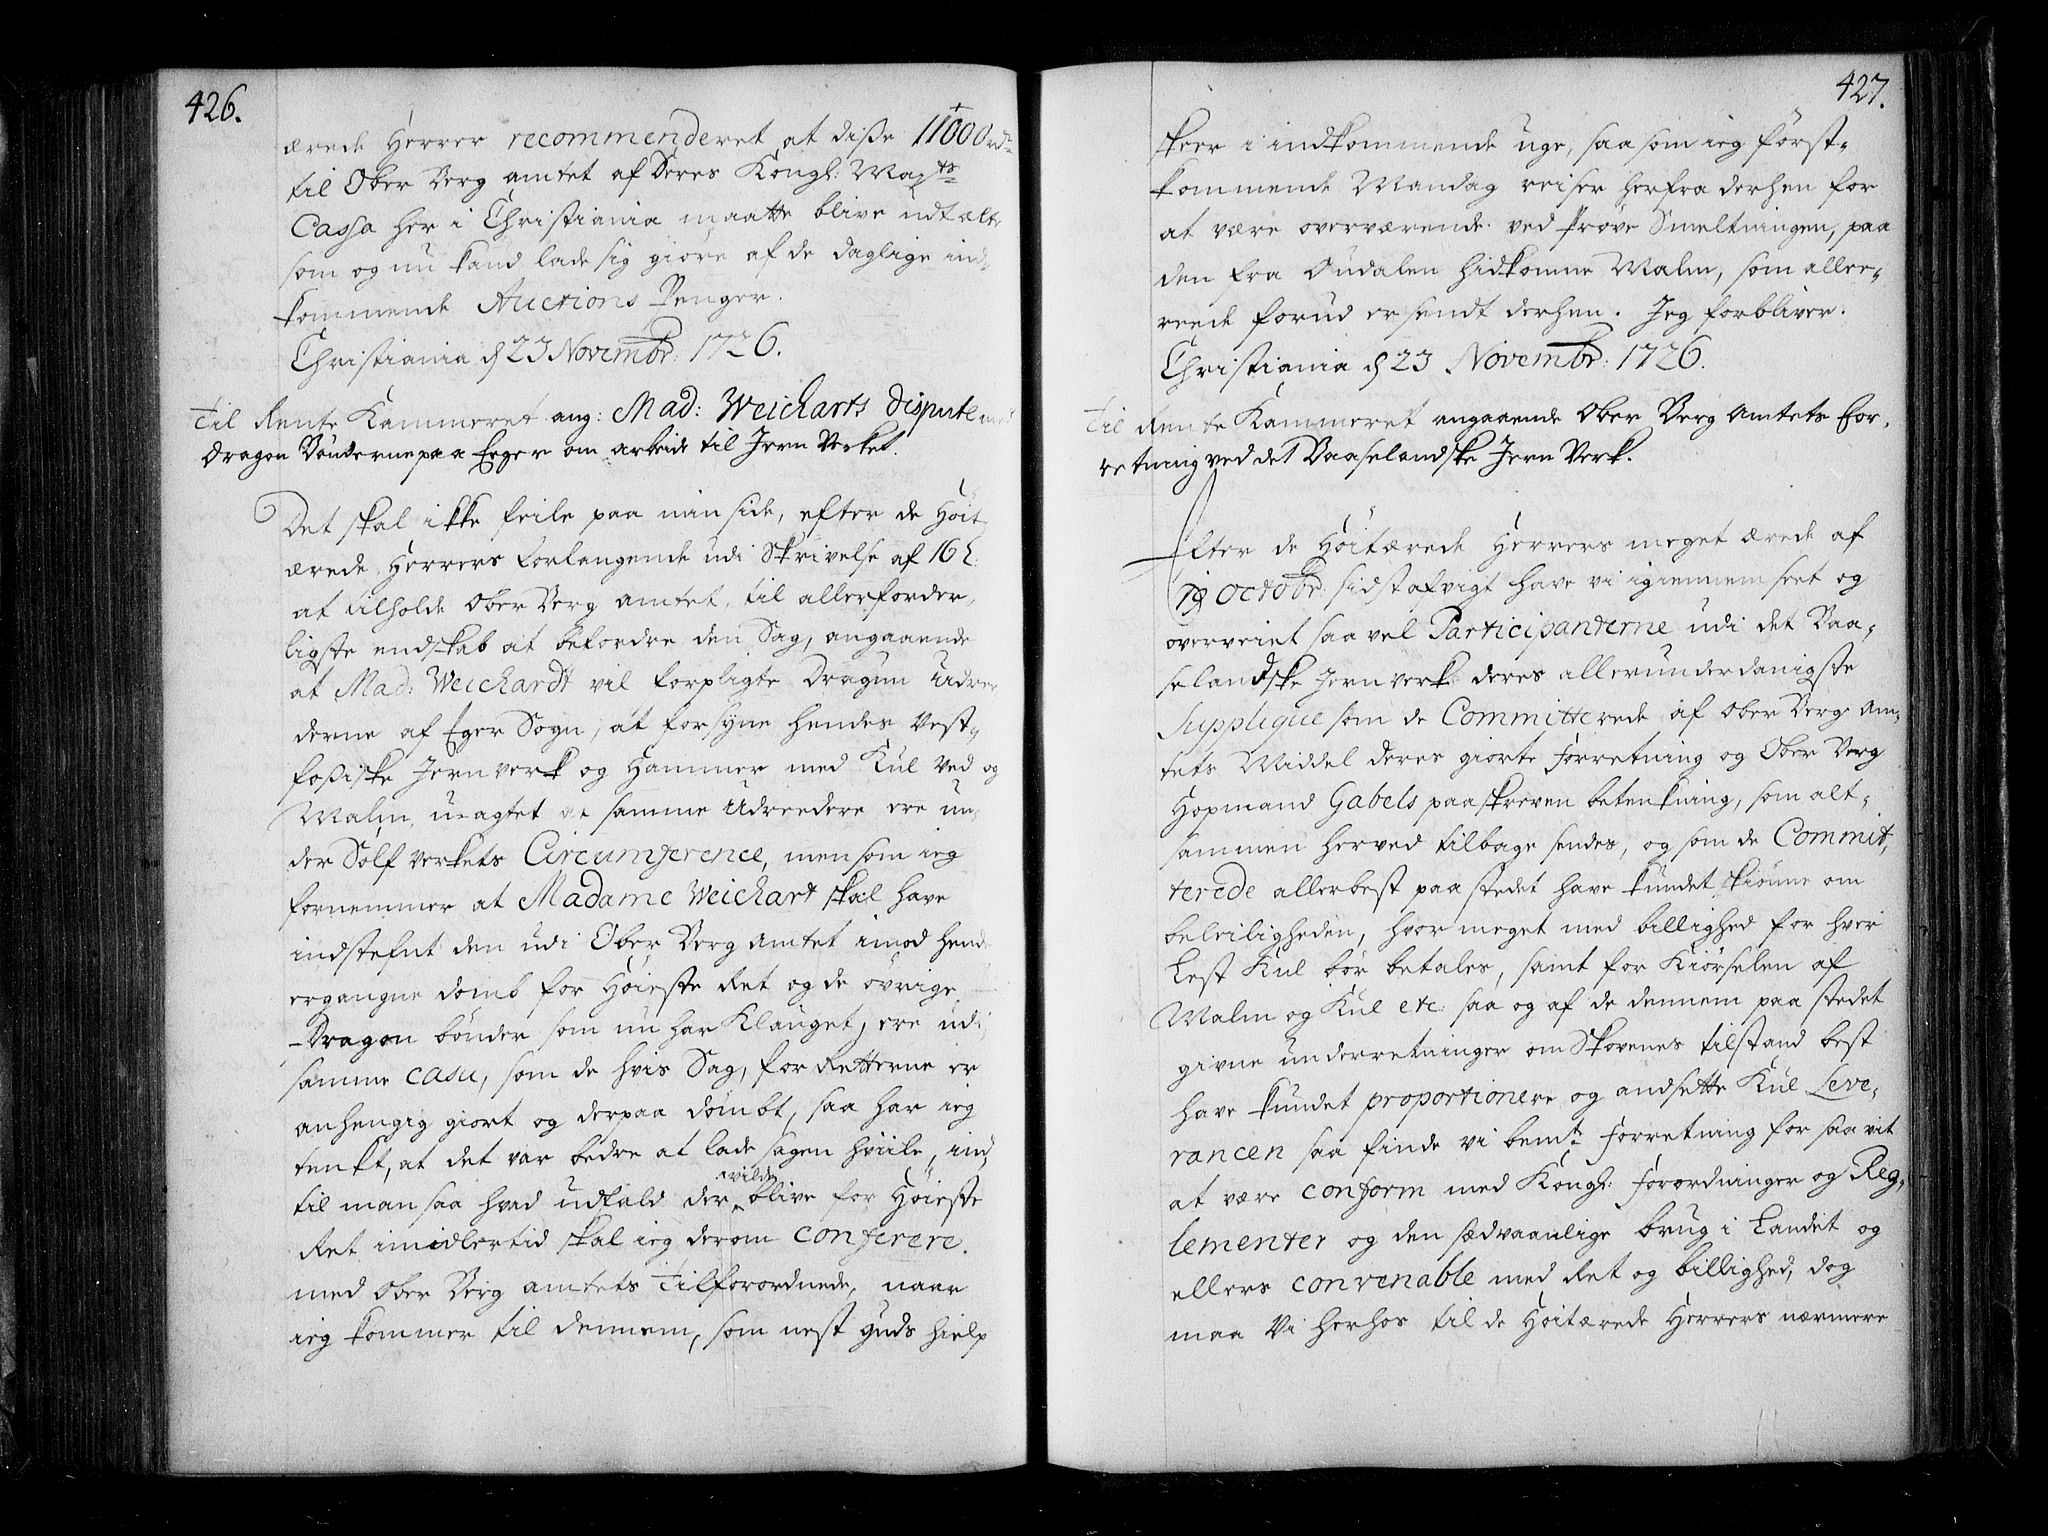 426.
ærede Herrer recommenderet at disse 11000 rdr
til Ober Berg amtet af Deres Kongl: Mayts
Cassa her i Christiania maatte blive udtælte
som og nu kand lade sig giöre af de daglige ind-
kommende Auctions Penger.
Christiania d 23 Novembr: 1726.
Til Rente Kammeret ang: Mad: Weicharts Dispute med
Dragon Bönderne paa Eger om arbeide til Jern Verket.
Det skal ikke feile paa min side, efter de Höit
ærede Herrers forlangende udi Skrivelse af 16
at tilholde Ober Berg amtet, til allerforder-
ligste endskab at befordre den Sag, angaaende
at Mad: Weichardt vil forpligte Dragun Udree
derne af Eger Sogn, at forsyne hendes Vest-
fossiske Jernverk og Hammer med Kul Ved og
Malm, uagtet at samme Udreedere ere un-
der Sölfverkets Circumference, men som ieg
fornemmer at Madame Weichart skal have
indstefnt den udi Ober Berg amtet imod hende
ergangne domb for Höieste Ret og de övrige
Dragon bönder som nu har Klauget, ere udi
samme casu, som de hvis Sag, for Retterne er
anhengig giort og derpaa dömbt, saa har ieg
tenkt, at det var bedre at lade sagen hviile, ind-
til man saa hvad udfald der vilde blive for Höieste
Ret imidlertid skal ieg derom conferere.
med Ober Berg amtets Tilforordnede, naar
ieg kommer til dennem, som nest Guds hielp
427.
skeer i indkommende uge, saasom ieg först-
kommende Mandag reiser herfra derhen for
at være overværende ved Pröve Smeltningen, paa
den fra Oudalen hidkomne Malm, som aller-
reede forud er sendt derhen. Jeg forbliver.
Christiania d 23 Novembr: 1726.
Til Rente Kammeret angaaende Ober Berg Amtets For-
retning ved det Baaselandske Jern Verk.
Efter de Höitærede Herrers meget ærede af
19 Octobr: sidstafvigt have vi igiennem seet og
overveiet saavel Participanterne udi det Baa-
selandske Jernverk deres allerunderdanigste
Supplique som de Committerede af Ober Berg Am-
tets Middel deres giorte Forretning og Ober Berg
Hopmand Gabels paaskreven betenkning, som alt-
sammen herved tilbage sendes, og som de Commit-
terede allerbest paa stedet have kundet skiönne om
beleiligheden, hvor meget med billighed for hver
Lest Kul bör betales, samt for Kiörselen af
Malm og Kul etc: saa og af de dennem paa stedet
givne underretninger om Skovenes tilstand best
have kundet proportionere og andsette Kul Leve-
rancen saa finde vi bemte Forretning for saavit
at være conform med Kongl: Forordninger og Reg-
lementer og den sædvaanlige brug i Landet og
ellers convenable med Ret og billighed, dog
maa Vi herhos til de Höitærede Herrers nærmere